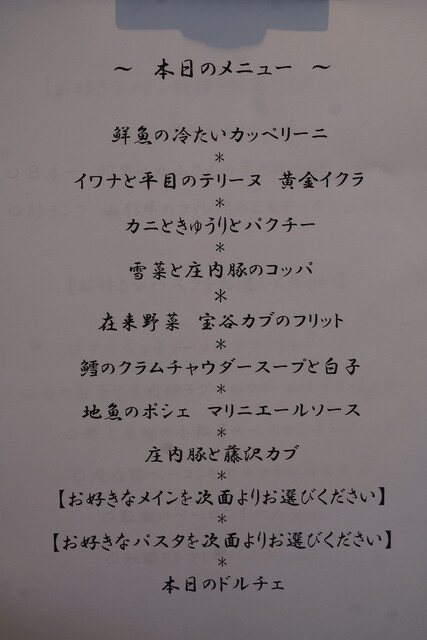 〜 本日のメニュー 〜
鮮魚の冷たいカッペリーニ
*
イワナと平目のテリーヌ 黄金イクラ
*
カニときゅうりとパクチー
*
雪菜と庄内豚のコッパ
*
在来野菜 宝谷カブのフリット
*
鱈のクラムチャウダースープと白子
*
地魚のポシェ マリニエールソース
*
庄内豚と藤沢カブ
*
【お好きなメインを次面よりお選びください】
*
【お好きなパスタを次面よりお選びください】
*
本日のドルチェ